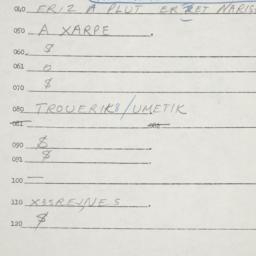 040 FRIZ A PLUT ERZET NARIS
050 A XARPE
060 $
061 O
070 $
080 TROUERIK8/UMETIK
081
090 $
091 $
100 —
110 X3SREJ/NES
120 $